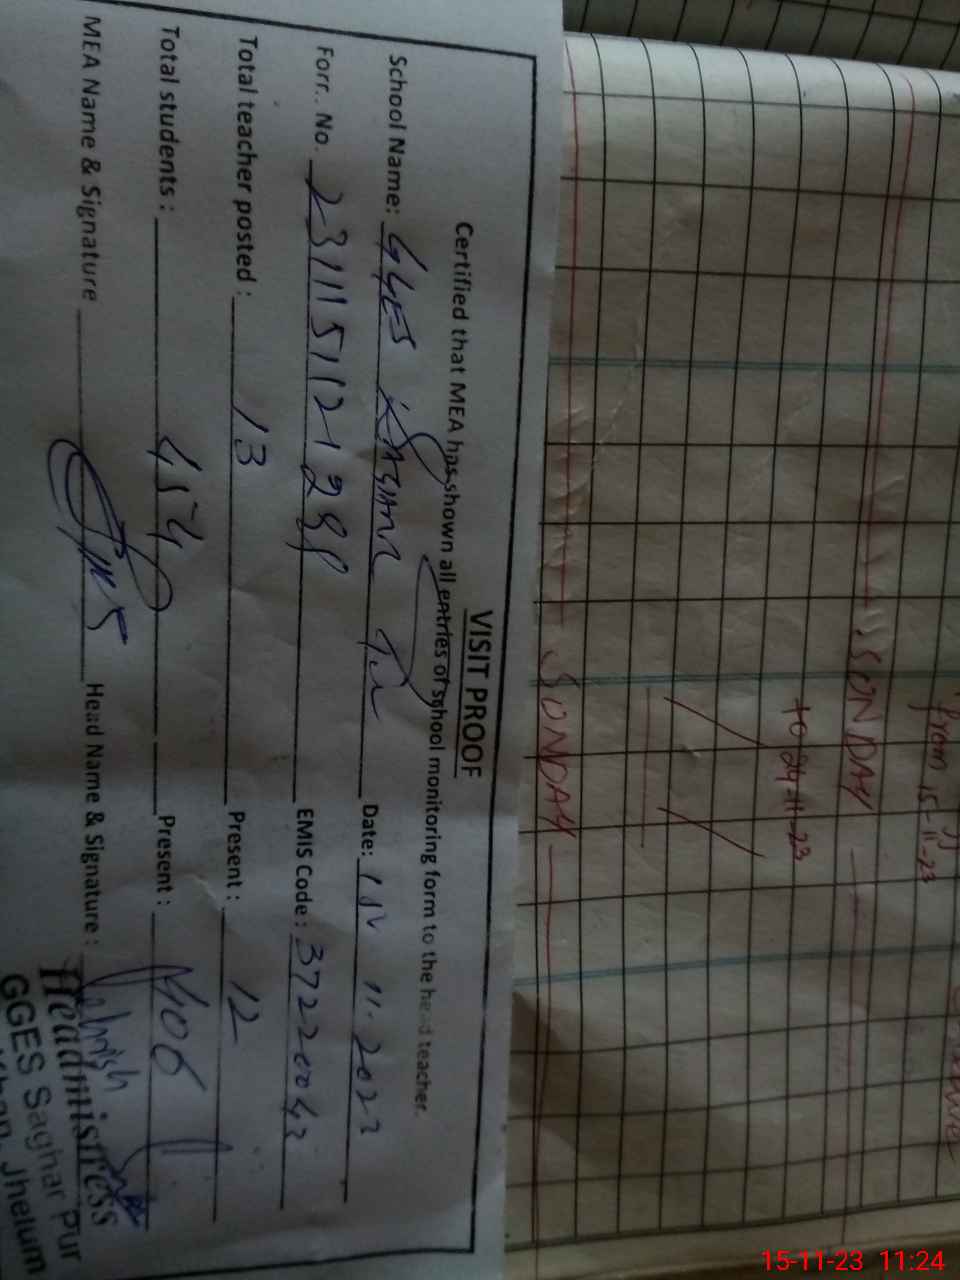 VISIT PROOF
Certified that MEA has shown all entries of school monitoring form to the head teacher.
School Name: GGES Date: 15 11. 2023
Form. No. EMIS Code: 37220042
Total teacher posted: 13 Present: 12
Total students: 454 Present: 406
MEA Name & Signature Head Name & Signature:
Headmistress
GGES Saghar Pur
Jhelum
from 15-11-23
SONDAY
to 24-11-23
SONDAY
15-11-23 11:24